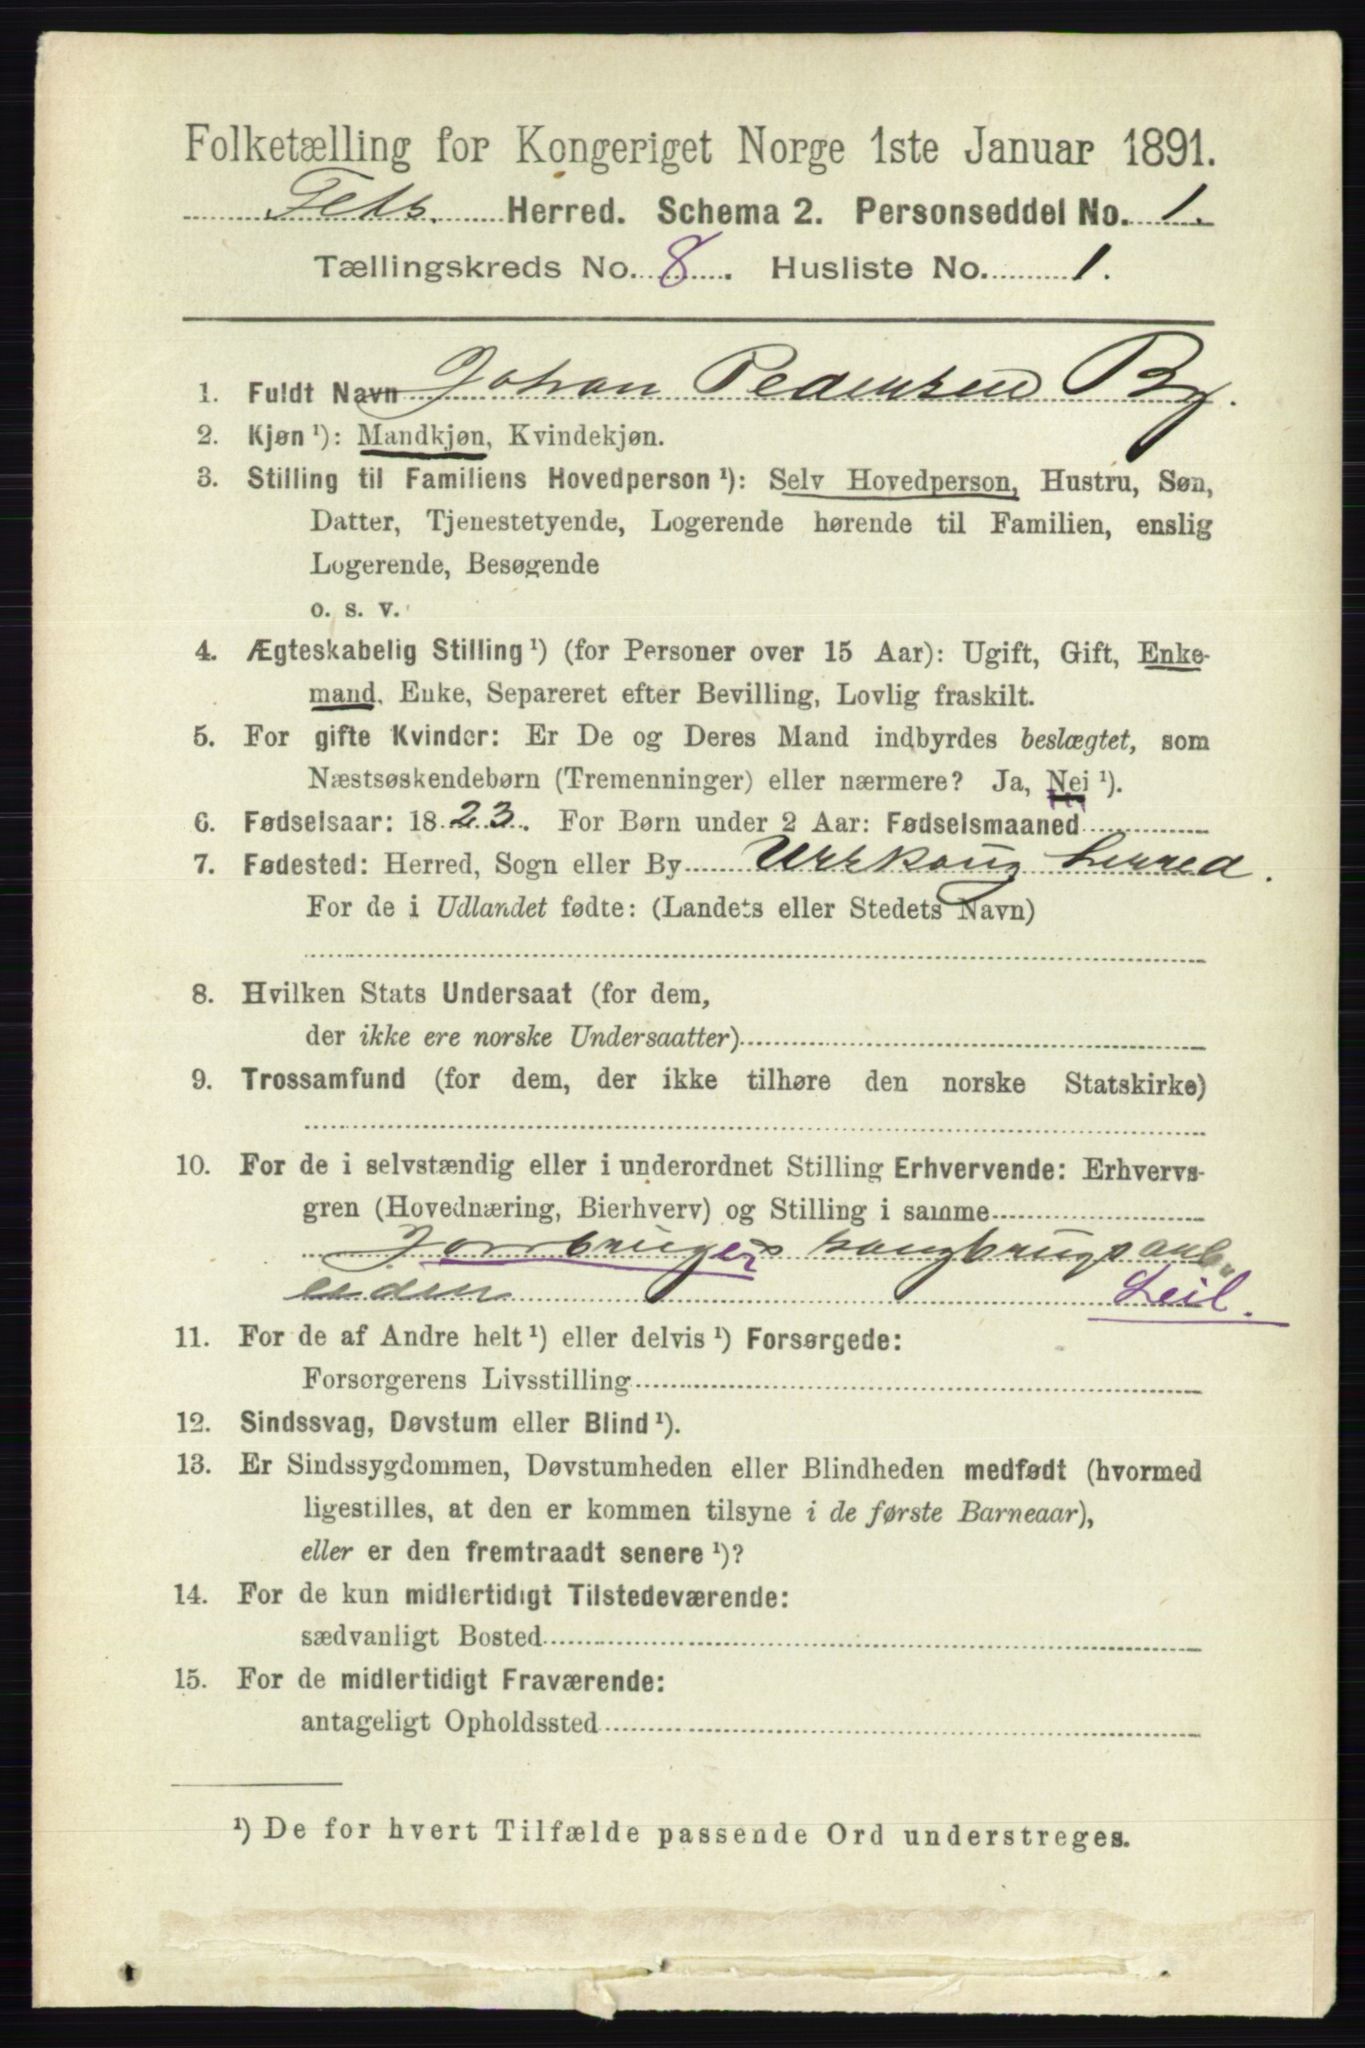 Folketælling for Kongeriget Norge 1ste Januar 1891.
Fets Herred. Schema 2. Personseddel No. 1.
Tællingskreds No. 8. Husliste No. 1.
1. Fuldt Navn Johan Pedersen By.
2. Kjøn ¹): Mandkjøn, Kvindekjøn.
3. Stilling til Familiens Hovedperson ¹): Selv Hovedperson, Hustru, Søn,
Datter, Tjenestetyende, Logerende hørende til Familien, enslig
Logerende, Besøgende
o. s. v.
4. Ægteskabelig Stilling ¹) (for Personer over 15 Aar): Ugift, Gift, Enke-
mand, Enke, Separeret efter Bevilling, Lovlig fraskilt.
5. For gifte Kvinder: Er De og Deres Mand indbyrdes beslægtet, som
Næstsøskendebørn (Tremenninger) eller nærmere? Ja, Nei ¹).
6. Fødselsaar: 1823. For Børn under 2 Aar: Fødselsmaaned
7. Fødested: Herred, Sogn eller By Urskoug Herred.
For de i Udlandet fødte: (Landets eller Stedets Navn)
8. Hvilken Stats Undersaat (for dem,
der ikke ere norske Undersaatter)
9. Trossamfund (for dem, der ikke tilhøre den norske Statskirke)
10. For de i selvstændig eller i underordnet Stilling Erhvervende: Erhvervs-
gren (Hovednæring, Bierhverv) og Stilling i samme
Jordbruger
Leil.
11. For de af Andre helt ¹) eller delvis ¹) Forsørgede:
Forsørgerens Livsstilling
12. Sindssvag, Døvstum eller Blind ¹).
13. Er Sindssygdommen, Døvstumheden eller Blindheden medfødt (hvormed
ligestilles, at den er kommen tilsyne i de første Barneaar),
eller er den fremtraadt senere ¹)?
14. For de kun midlertidigt Tilstedeværende:
sædvanligt Bosted
15. For de midlertidigt Fraværende:
antageligt Opholdssted
¹) De for hvert Tilfælde passende Ord understreges.